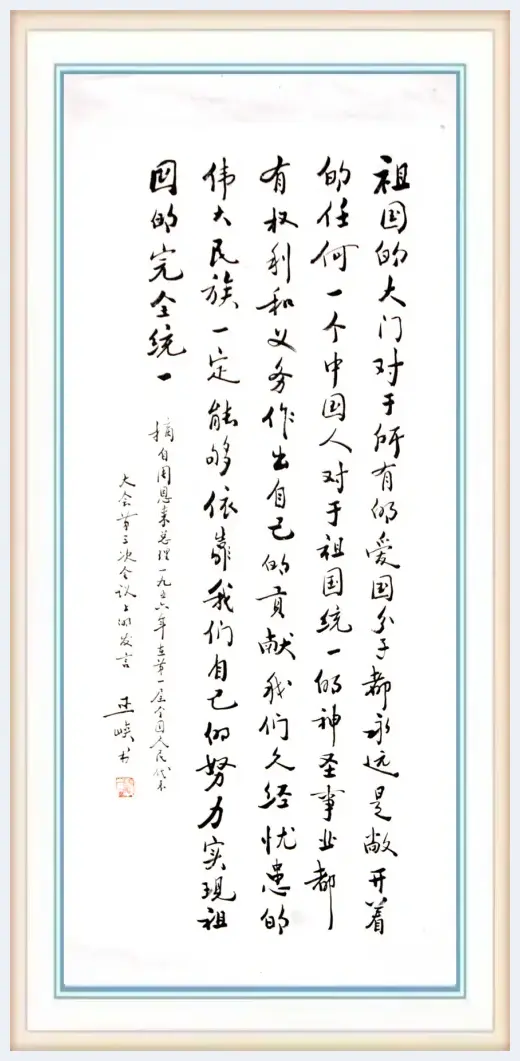 祖国的大门对于所有的爱国分子都永远是敞开着
的任何一个中国人对于祖国统一的神圣事业都
有权利和义务作出自己的贡献我们久经忧患的
伟大民族一定能够依靠我们自己的努力实现祖
国的完全统一
摘自周恩来总理一九五六年在第一届全国人民代表
大会第三次会议上的发言
书